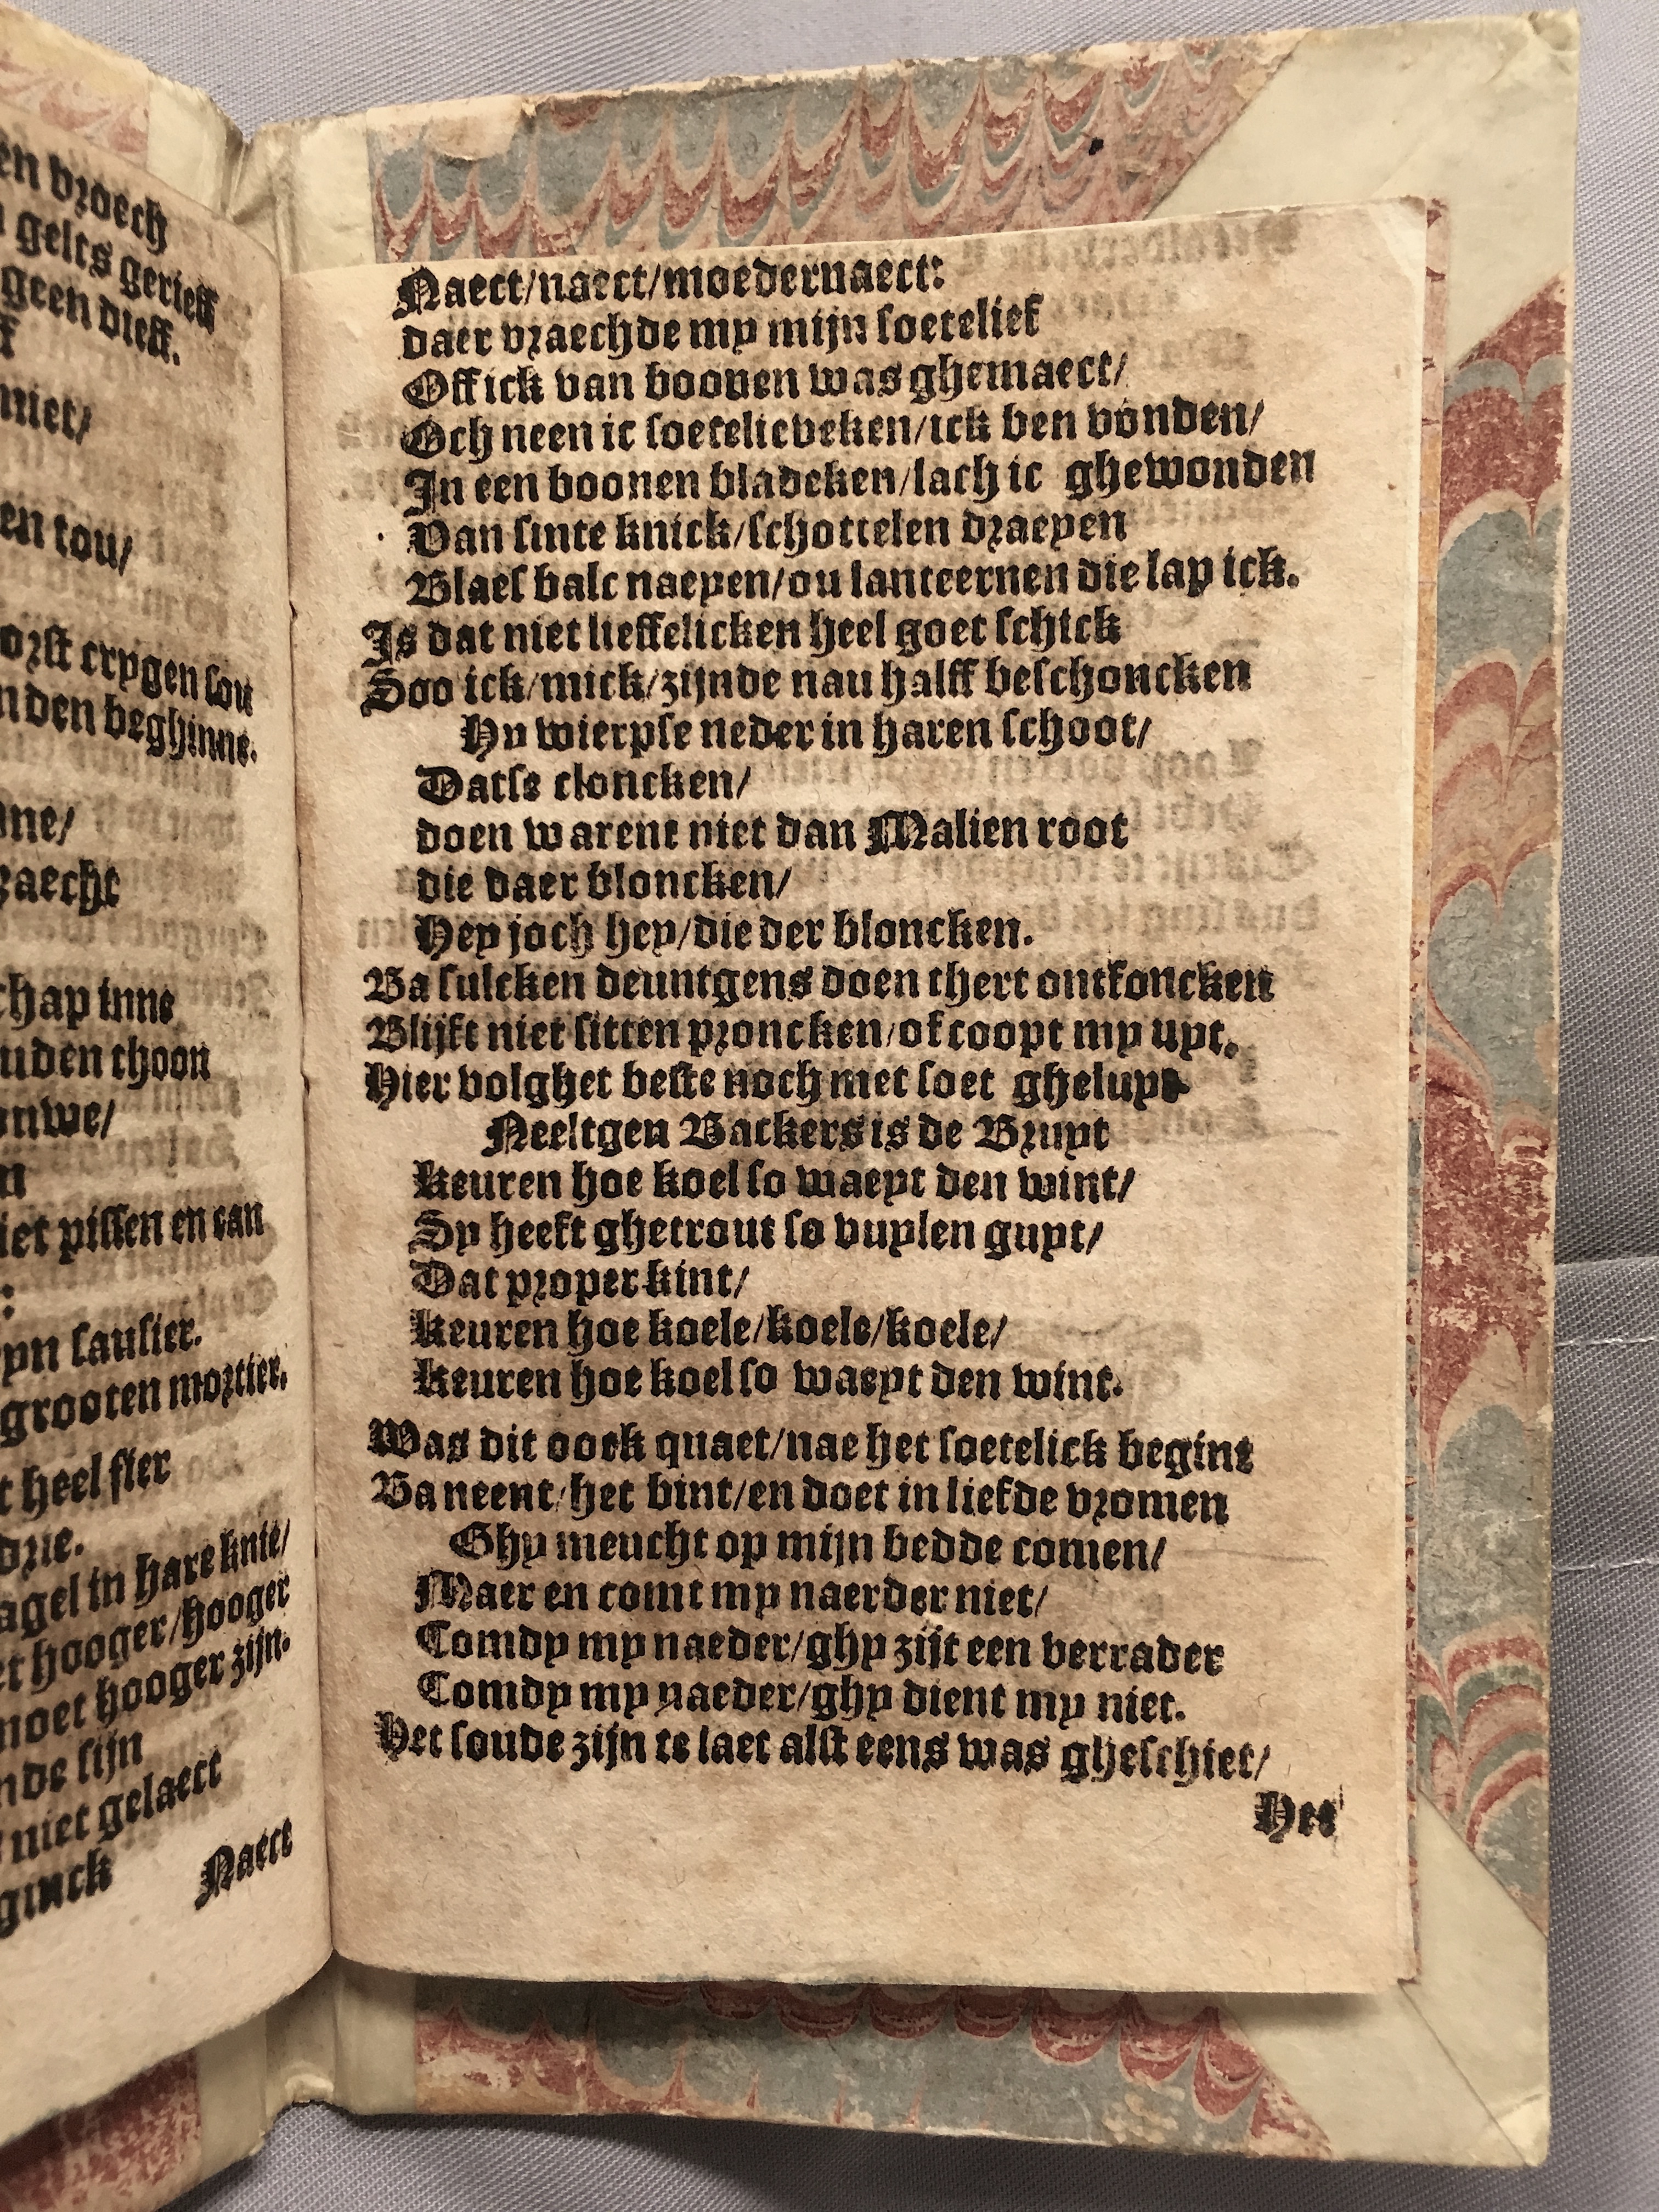 en vroech
gelts gerieff
geen dieff.
niet/
en tou/
orst crygen sou
n den beghinne.
ne/
raecht
chap inne
uden thoon
nwe/
n
iet pissen en can
:
yn sausier.
grooten mortier.
t heel fier
drie.
agel in hare knie/
et hooger/hooger
moet hooger zijn.
nde sijn
niet gelaect
ginck
Naect
Naect/naect/moedernaect:
daer vraechde my mijn soetelief
Off ick van boonen was ghemaect/
Och neen ic soetelieveken/ick ben vonden/
In een boonen bladeken/lach ic ghewonden
Van sinte knick/schottelen draeyen
Blaes balc naeyen/ou lanteernen die lap ick.
Is dat niet lieffelicken heel goet schick
Soo ick/mick/zijnde nau halff beschoncken
Hy wierpse neder in haren schoot/
Datse cloncken/
doen warent niet dan Malien root
die daer bloncken/
Hey joch hey/die der bloncken.
Ba sulcken deuntgens doen thert ontfoncken
Blijft niet sitten proncken/of coopt my uyt.
Hier volghet beste noch met soet gheluyt
Neeltgen Backers is de Bruyt
keuren hoe koel so waeyt den wint/
Sy heeft ghetrout so vuylen guyt/
Dat proper kint/
keuren hoe koele/koele/koele/
keuren hoe koel so waeyt den wint.
Was dit oock quaet/nae het soetelick begint
Ba neent/het bint/en doet in liefde vromen
Ghy meucht op mijn bedde comen/
Maer en comt my naerder niet/
Comdy my naeder/ghy zijt een verrader
Comdy my naeder/ghy dient my niet.
Het soude zijn te laet alst eens was gheschiet/
Het